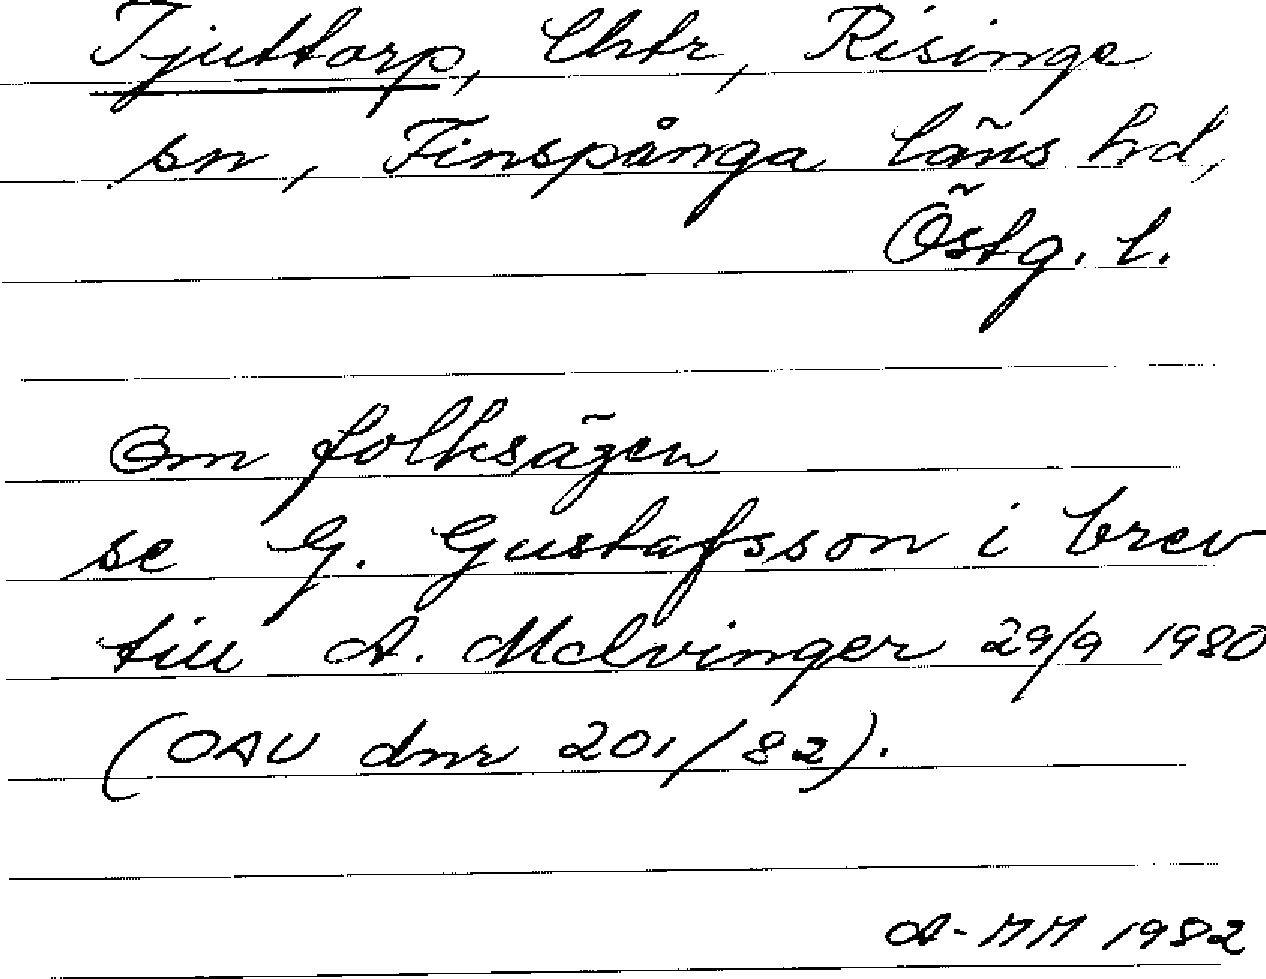 Tjuttorp, lhtr, Risinge
sn, Finspånga läns hd,
Östg. l.
Om folksägen
se G. Gustafsson i brev
till A. Melvinger 29/9 1980
(OAU dnr 201/82).
A-MM 1982